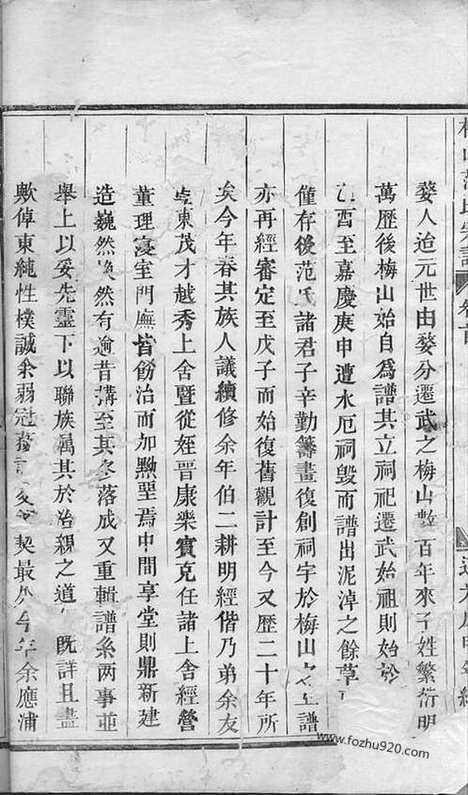 婺人迨元世由婺分遷武之梅山數百年來子姓繁衍明
萬歷後梅山始自為譜其立祠祀遷武始祖則始於
酉至嘉慶庚申遭水厄祠毀而譜出泥淖之餘草
僅存後范氏諸君子辛勤籌畫復創祠宇於梅山之上譜
亦再經審定至戊子而始復舊觀計至今又歷二十年所
矣今年春其族人議續修余年伯二耕明經偕乃弟余友
東茂才越秀上舍暨從姪晉康樂賓克任諸上舍經營
董理寢室門廡皆飭治而加黝堊焉中間享堂則鼎新建
造巍然煥然有逾昔構至其冬落成又重輯譜系兩事並
舉上以妥先靈下以聯族屬其於治親之道 既詳且盡
歟倬東純性樸誠余弱冠 契最 今年余應浦
www.fozhu920.com